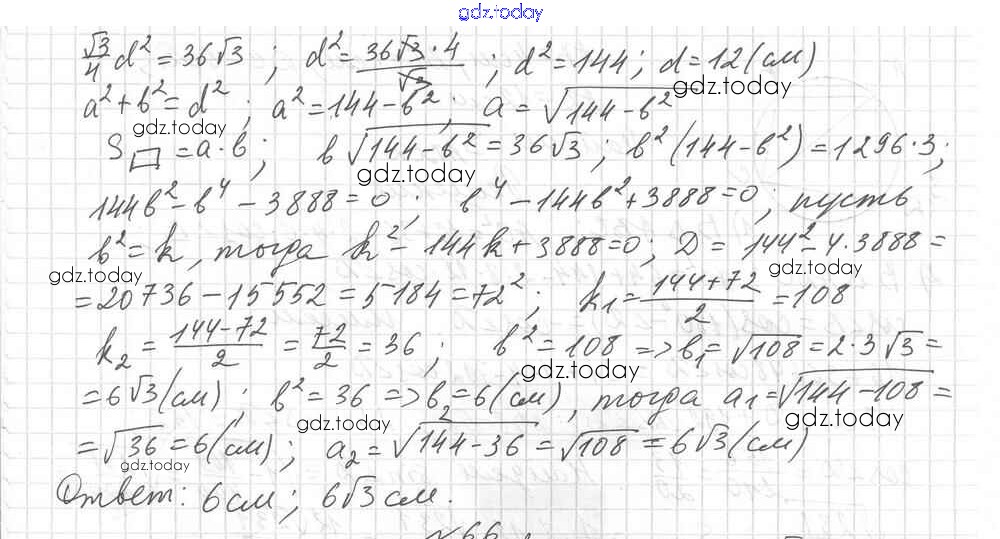 gdz.today
√3/4 d² = 36√3 ; d² = 36√3 · 4/√3 ; d² = 144 ; d = 12 (см)
gdz.today
a² + b² = d² ; a² = 144 − b² ; a = √144 − b²
gdz.today
S▱ = a · b ; b√144 − b² = 36√3 ; b² (144 − b²) = 1296 · 3 ;
gdz.today
144b² − b⁴ − 3888 = 0 ; b⁴ − 144b² + 3888 = 0 ; пусть
b² = k, тогда k² − 144k + 3888 = 0 ; D = 144² − 4 · 3888 =
gdz.today gdz.today
= 20736 − 15552 = 5184 = 72² ; k₁ = 144+72/2 = 108
k₂ = 144−72/2 = 72/2 = 36 ; b² = 108 => b₁ = √108 = 2 · 3√3 =
gdz.today
= 6√3 (см) ; b² = 36 => b₂ = 6 (см), тогда a₁ = √144 − 108 =
gdz.today gdz.today
= √36 = 6 (см) ; a₂ = √144 − 36 = √108 = 6√3 (см)
gdz.today
Ответ: 6 см ; 6√3 см.
№66